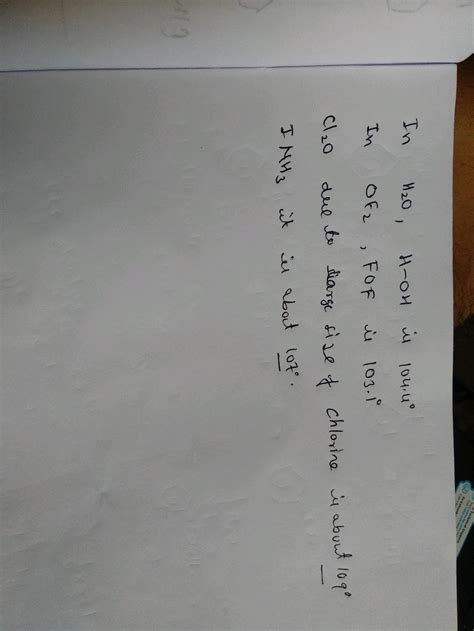 In H₂O, H-OH is 104.4°
In OF₂, FOF is 103.1°
Cl₂O due to large size of Chlorine is about 109°
I NH₃ it is about 107°.